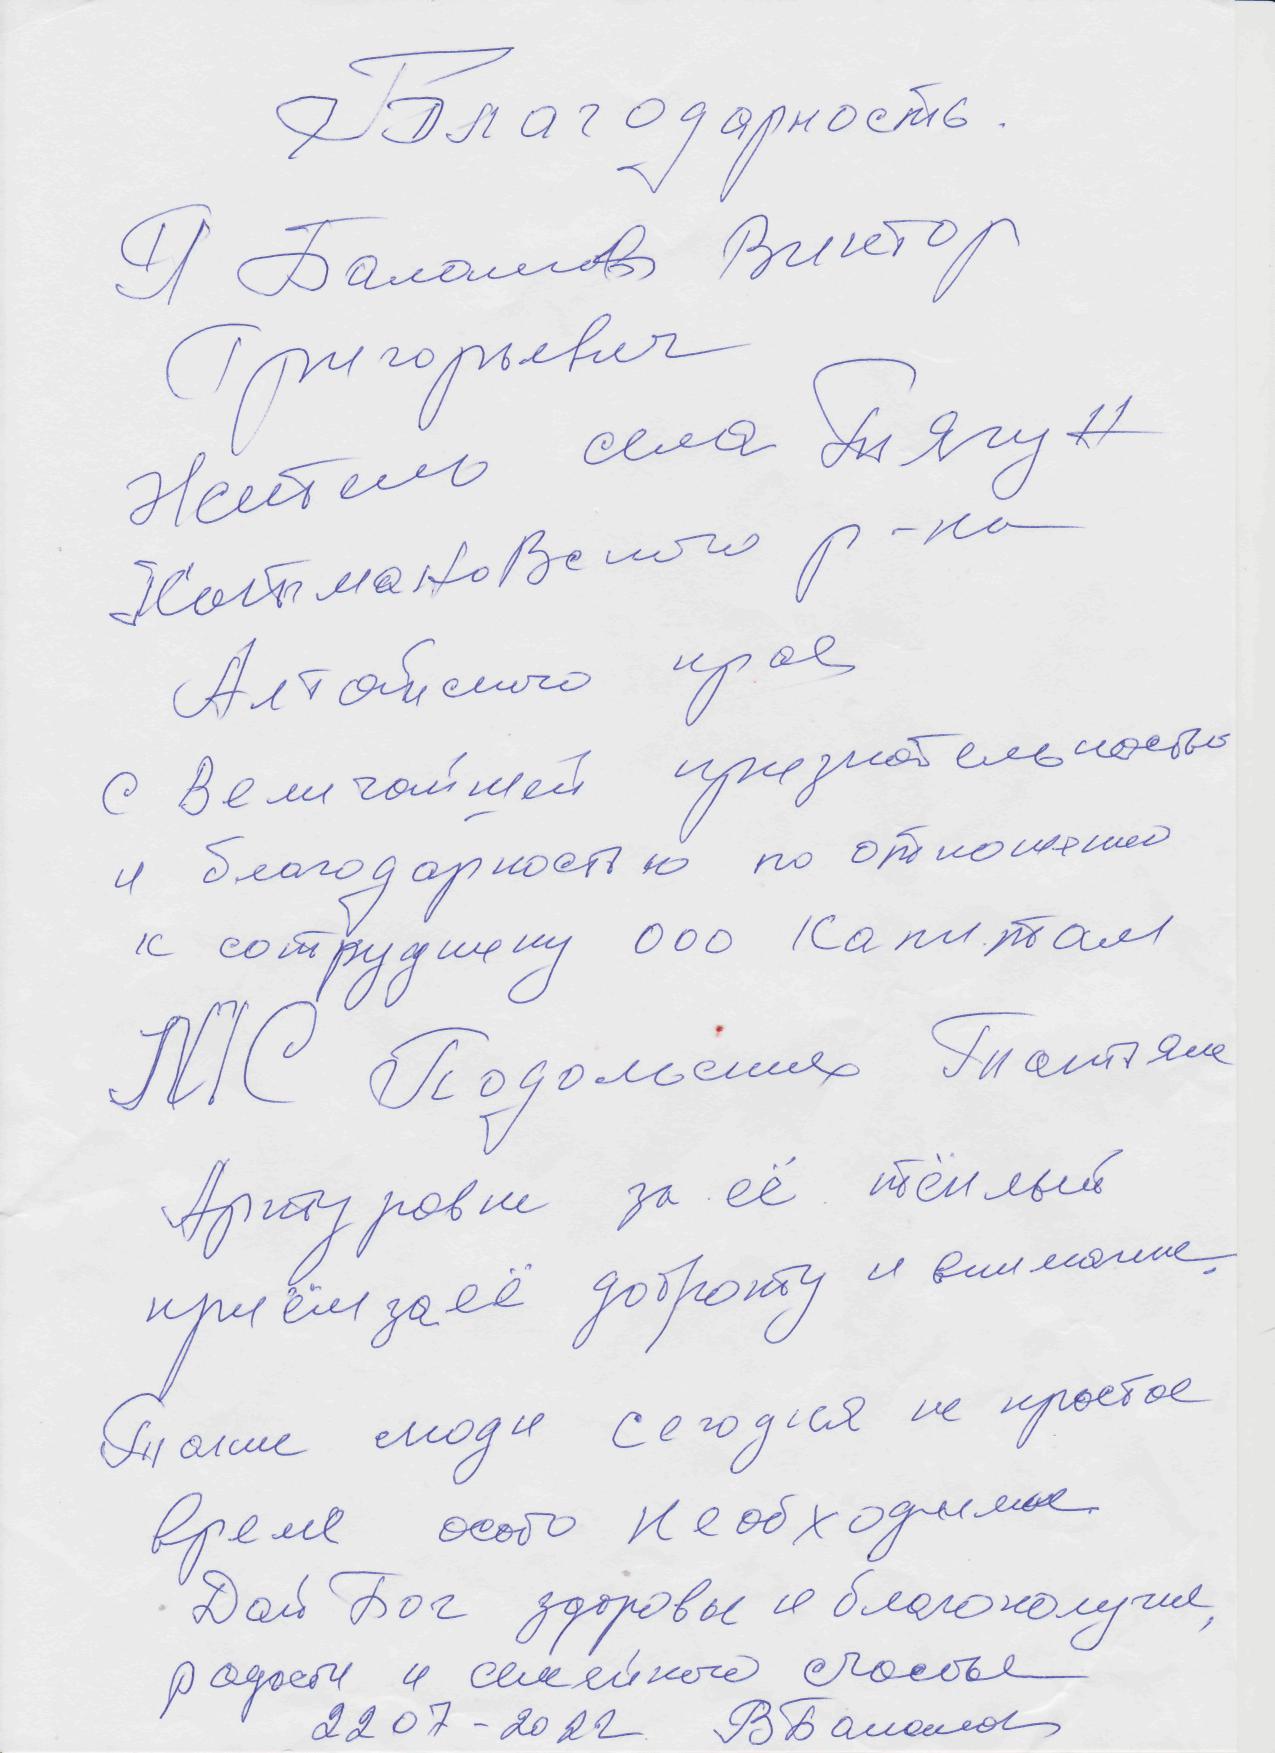 Благодарность.
Я Балашов Виктор
Григорьевич
Житель села Тягун
Кытмановского р-на
Алтайского края
с Величайшей признательностью
и благодарностью по отношению
к сотруднику ООО Капитал
МС Подольских Татьяне
Артуровне за её тёплый
приём за её доброту и внимание.
Такие люди сегодня не простое
время особо необходимы.
Дай Бог здоровья и благополучия,
радости и семейного счастья
22 07-2022 ВБалашов